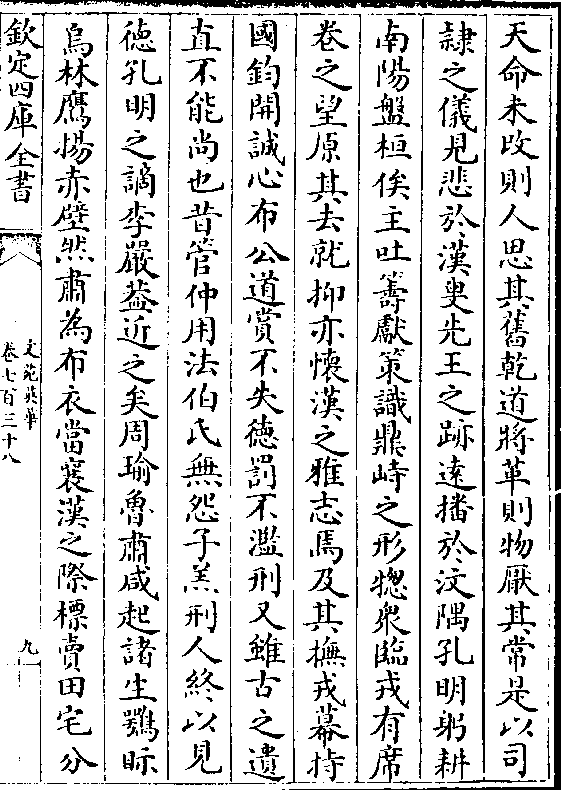 天命未改則人思其舊乾道將革則物厭其常是以司
隷之儀見悲於漢叟先王之跡逺播於汶隅孔明躬耕
南陽盤桓俟主吐籌獻策識鼎峙之形揔衆臨戎有席
卷之望原其去就抑亦懐漢之雅志焉及其撫戎幕持
國鈞開誠心布公道賞不失徳罰不濫刑又雖古之遺
直不能尚也昔管仲用法伯氏無怨子羔刑人終以見
徳孔明之謫李嚴葢近之矣周瑜魯肅咸起諸生鶚眎
烏林鷹揚赤壁然肅為布衣當衰漢之際標賣田宅分
欽定四庫全書
文苑英華
卷七百三十八
九